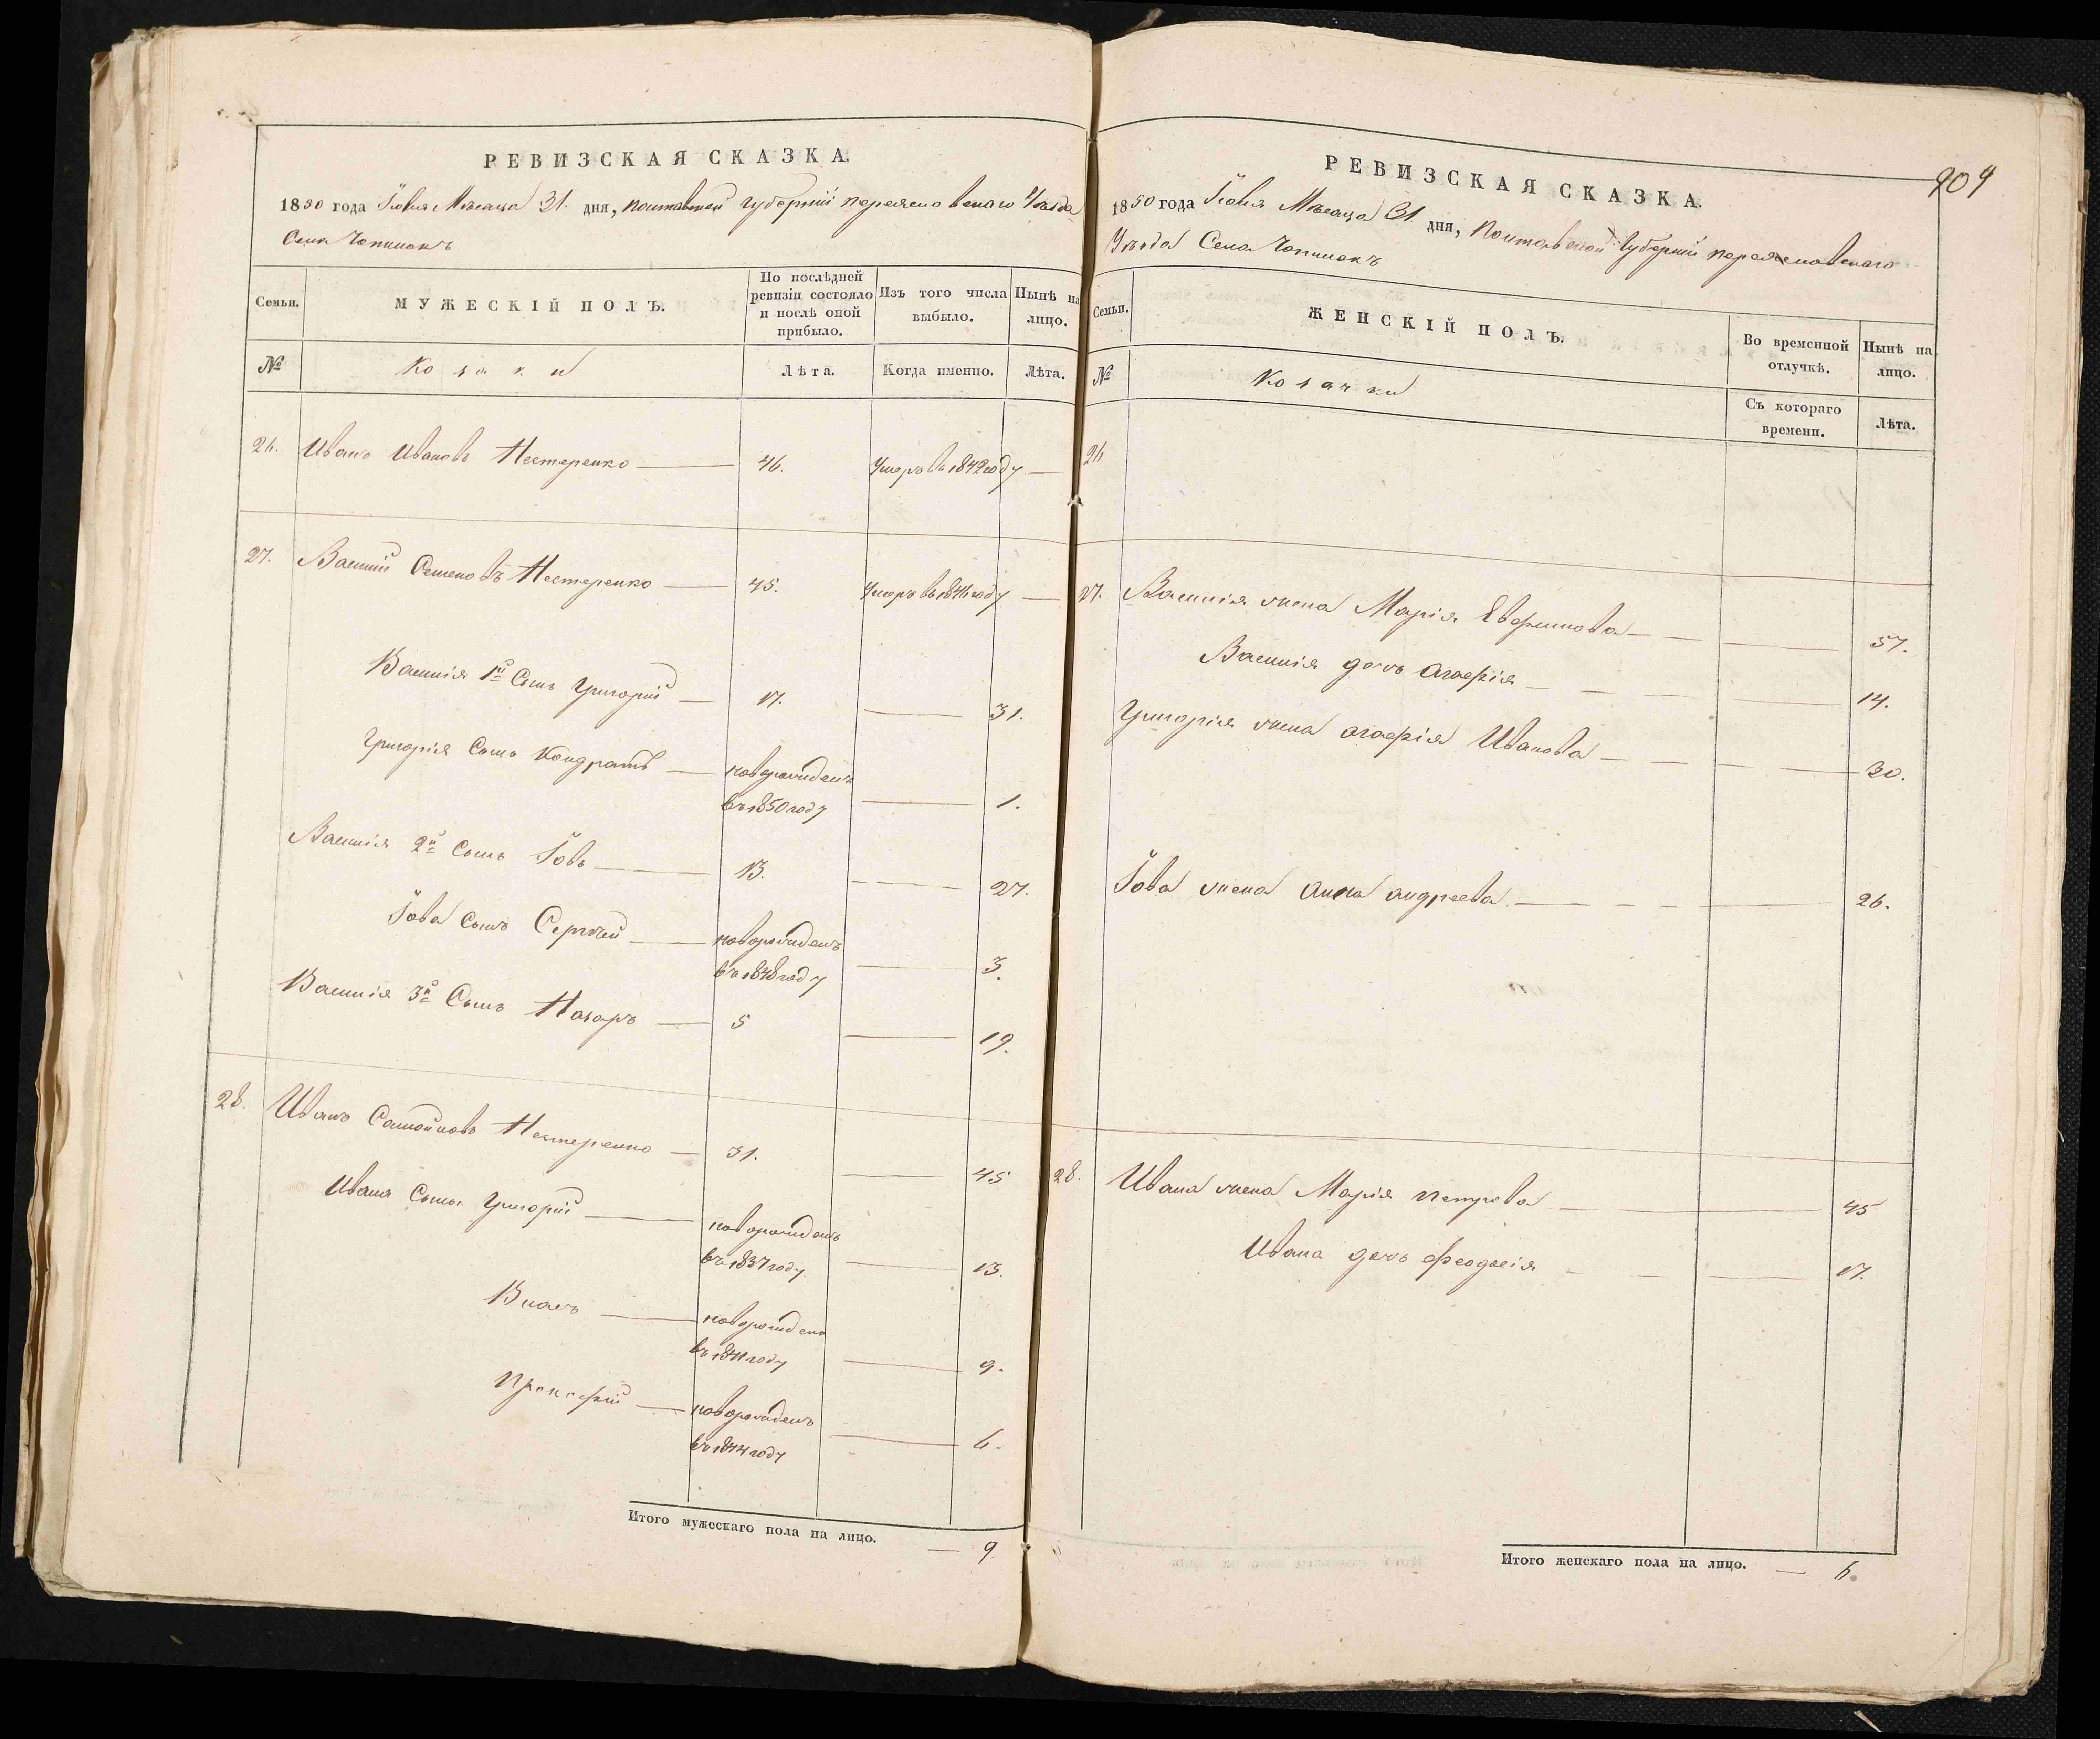 РЕВИЗСКАЯ СКАЗКА.
1850 года Іюля Месяца 31. дня, Полтавской Губерніи Переяславскаго Уезда
Села Чопилокъ
Семьи.
МУЖЕСКІЙ ПОЛЪ.
По послѣдней ревизіи состояло и послѣ оной прибыло.
Изъ того числа выбыло.
Нынѣ на лицо.
№
Козаки
Лѣта.
Когда именно.
Лѣта.
26. Иванъ Ивановъ Нестеренко — 46. Умеръ въ 1842 году —
27. Василий Семеновъ Нестеренко — 45. Умеръ въ 1846 году —
Василія 1й Сынъ Григорій — 17. — 31.
Григорія Сынъ Кондратъ — новорожденъ
въ 1850 году — 1.
Василія 2й Сынъ Іовъ — 13. — 27.
Іова Сынъ Сергѣй — новорожденъ
въ 1848 году — 3.
Василія 3й Сынъ Назаръ — 5 — 19.
28. Иванъ Самойловъ Нестеренко — 31. — 45
Ивана Сынъ Григорій — новорожденъ
въ 1837 году — 13.
Власъ — новорожденъ
въ 1841 году — 9.
Прокофій — новорожденъ
въ 1844 году — 6.
Итого мужескаго пола на лицо. — 9
904
РЕВИЗСКАЯ СКАЗКА.
1850 года Іюля Месяца 31. дня, Полтавской Губерніи Переяславскаго
Уезда Села Чопилокъ
Семьи.
ЖЕНСКІЙ ПОЛЪ.
Во временной отлучкѣ.
Нынѣ на лицо.
№
Козачки
Съ котораго времени.
Лѣта.
26
27. Василія жена Марія Евфимова — 57.
Василія дочь Агафія — 14.
Григорія жена Агафія Иванова — 30.
Іова жена Анна Андреева — 26.
28. Ивана жена Марія Петрова — 45
Ивана дочь Феодосія — 17.
Итого женскаго пола на лицо. — 6